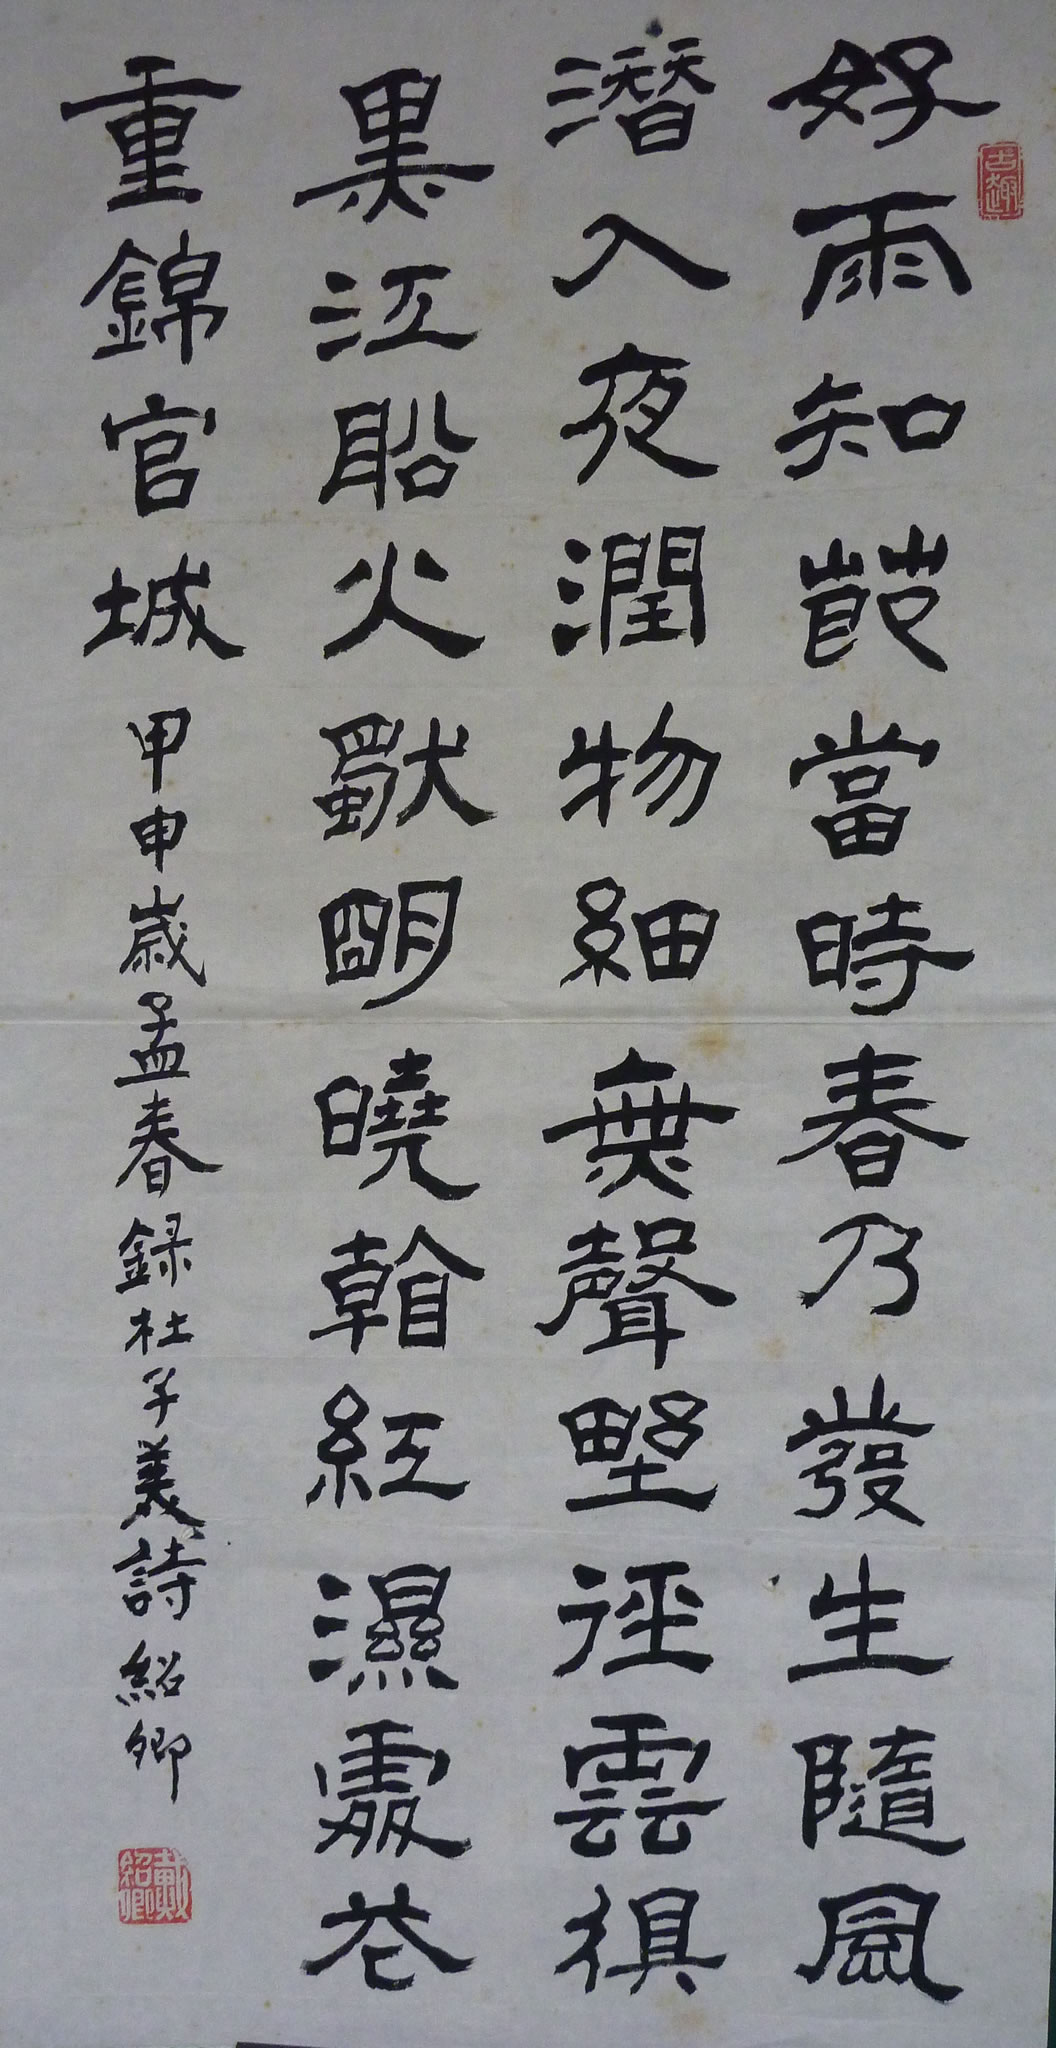 古趣
好雨知節當時春乃發生隨風
潛入夜潤物細無聲野徑雲俱
黑江船火獨明曉看紅濕處花
重錦官城 甲申歲孟春錄杜子美詩紹卿
戴紹卿